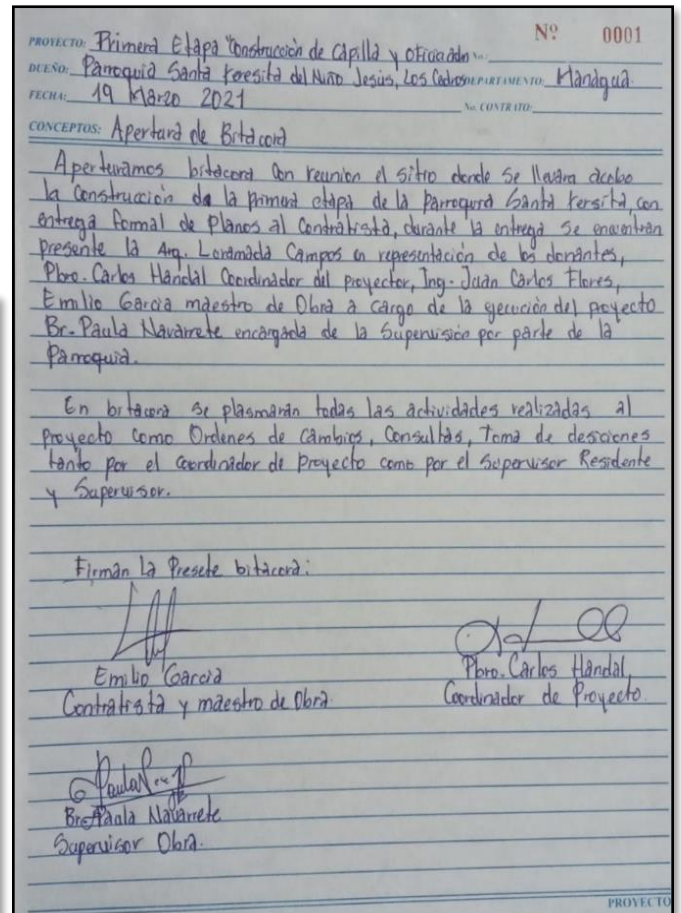 Nº 0001
PROYECTO: Primera Etapa "Construcción de Capilla y Oficina No.
DUEÑO: Parroquia Santa Teresita del Niño Jesús, Los Cedros DEPARTAMENTO: Managua
FECHA: 19 Marzo 2021 No. CONTRATO:
CONCEPTOS: Apertura de Bitacora
Aperturamos bitacora con reunion el sitio donde se llevara acabo
la construcción de la primera etapa de la Parroquia Santa Teresita, con
entrega formal de Planos al Contratista, durante la entrega se encuentran
presente la Arq. Campos en representación de los donantes,
Pbro. Carlos Handal Coordinador del proyector, Ing. Juan Carlos Flores,
Emilio Garcia maestro de Obra a cargo de la ejecución del proyecto
Br. Paula Navarrete encargada de la Supervisión por parte de la
Parroquia.
En bitacora se plasmarán todas las actividades realizadas al
proyecto como Ordenes de Cambios, Consultas, Toma de
tanto por el Coordinador de Proyecto como por el Supervisor Residente
y Supervisor.
Firman la Presete bitácora:
Emilio Garcia
Contratista y maestro de Obra
Pbro. Carlos Handal
Coordinador de Proyecto.
Br. Paula Navarrete
Supervisor Obra.
PROYECTO